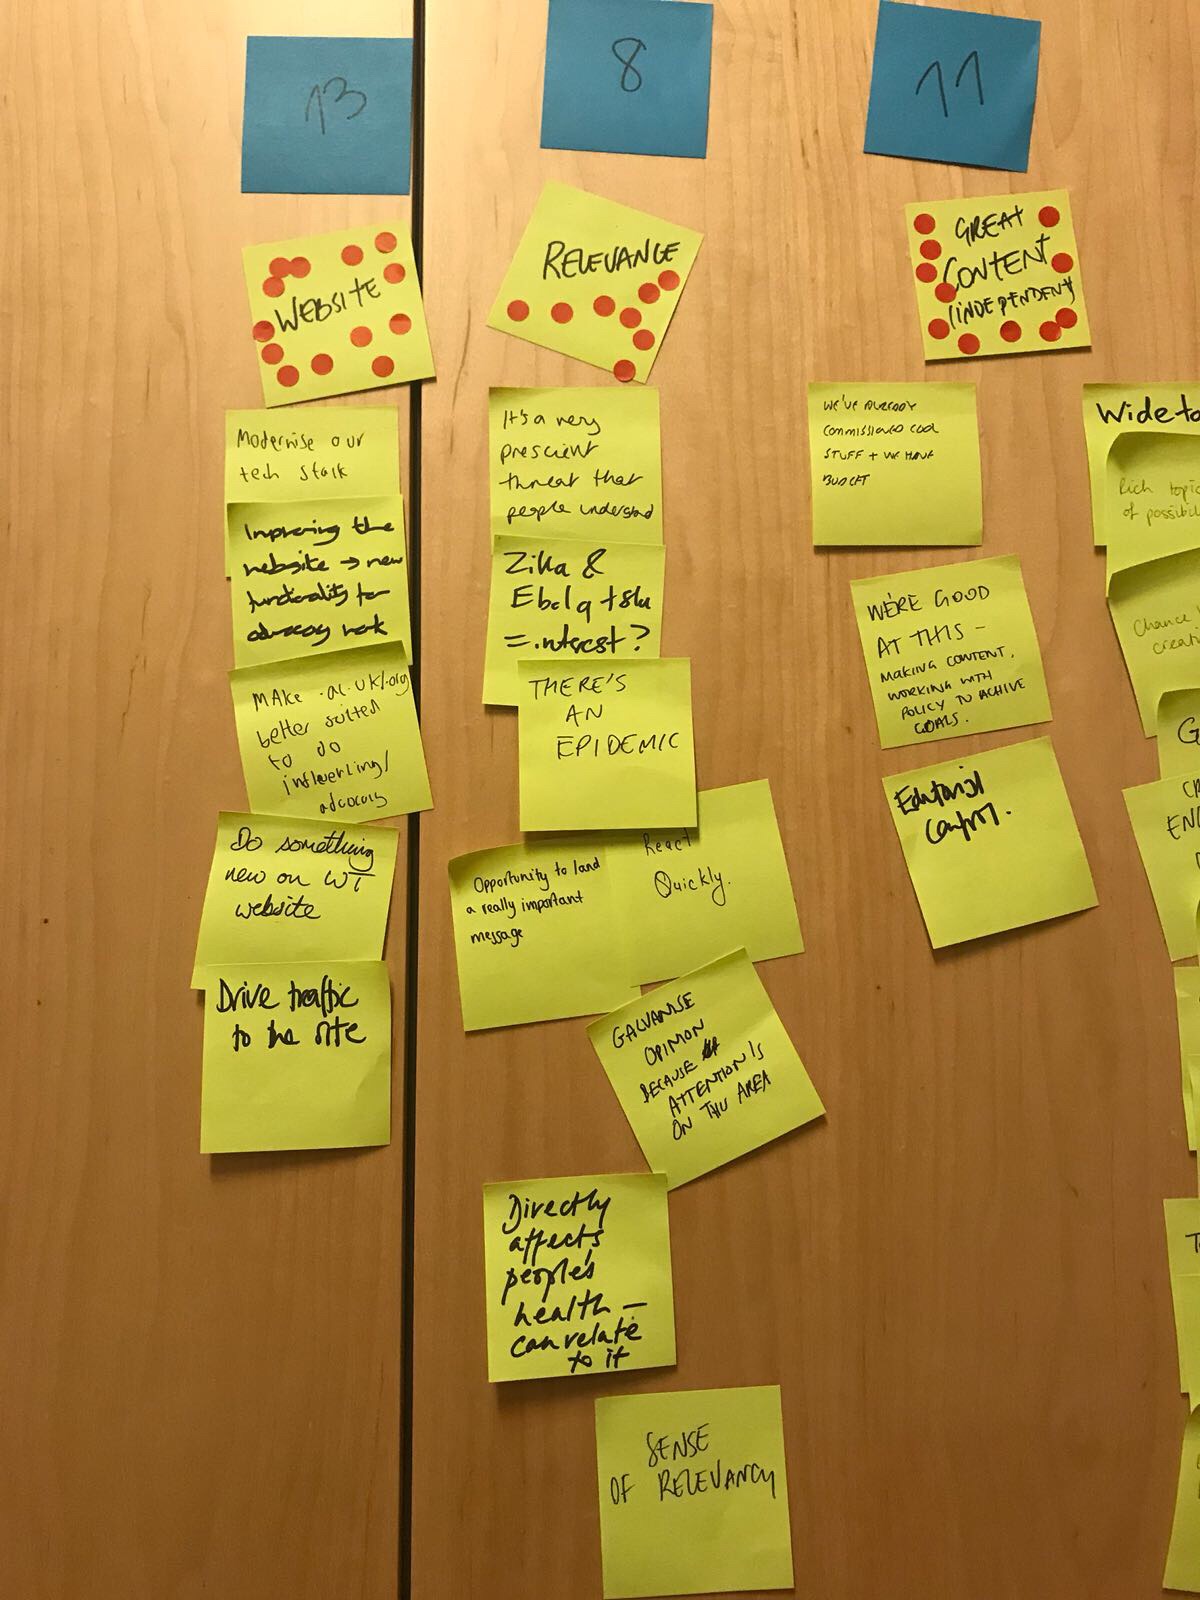 13
8
11
WEBSITE
Modernise our
tech stack
Improving the
website → new
functionality for
advocacy work
MAke .ac.uk/.org
better suited
to do
influencing/
advocacy
Do something
new on WT
website
Drive traffic
to the site
RELEVANCE
It's a very
prescient
threat that
people understand
Zika &
Ebola + flu
= interest?
THERE'S
AN
EPIDEMIC
Opportunity to land
a really important
message
React
Quickly.
GALVANISE
OPINION
BECAUSE
ATTENTION IS
ON THIS AREA
Directly
affects
people's
health —
can relate
to it
SENSE
OF RELEVANCY
GREAT
CONTENT
(INDEPENDENT)
WE'VE ALREADY
COMMISSIONED COOL
STUFF + WE HAVE
BUDGET
WE'RE GOOD
AT THIS —
MAKING CONTENT,
WORKING WITH
POLICY TO ACHIVE
GOALS.
Editorial
control.
Wide
Rich
of
Chance